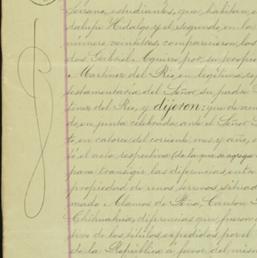 Serrano estudiantes, que habitan, e
dalupe Hidalgo y el segundo en la
número comparecieron los
dos Gabriel Aguirre por su propio
Martinez del Rio, en legítima rep
testamentaria del Señor su padre
tinez del Rio, y dijeron: que de an
do, en junta celebrada ante el Señor
to, en catorce del corriente mes y año, s
el acta respectiva de la que se agrega
para transigir las diferencias entre
propiedad de unos terrenos situad
nado Alamos de Peña, Canton
Chihuahua, diferencias que
tivo de los títulos expedidos por el
de la República a favor del mism